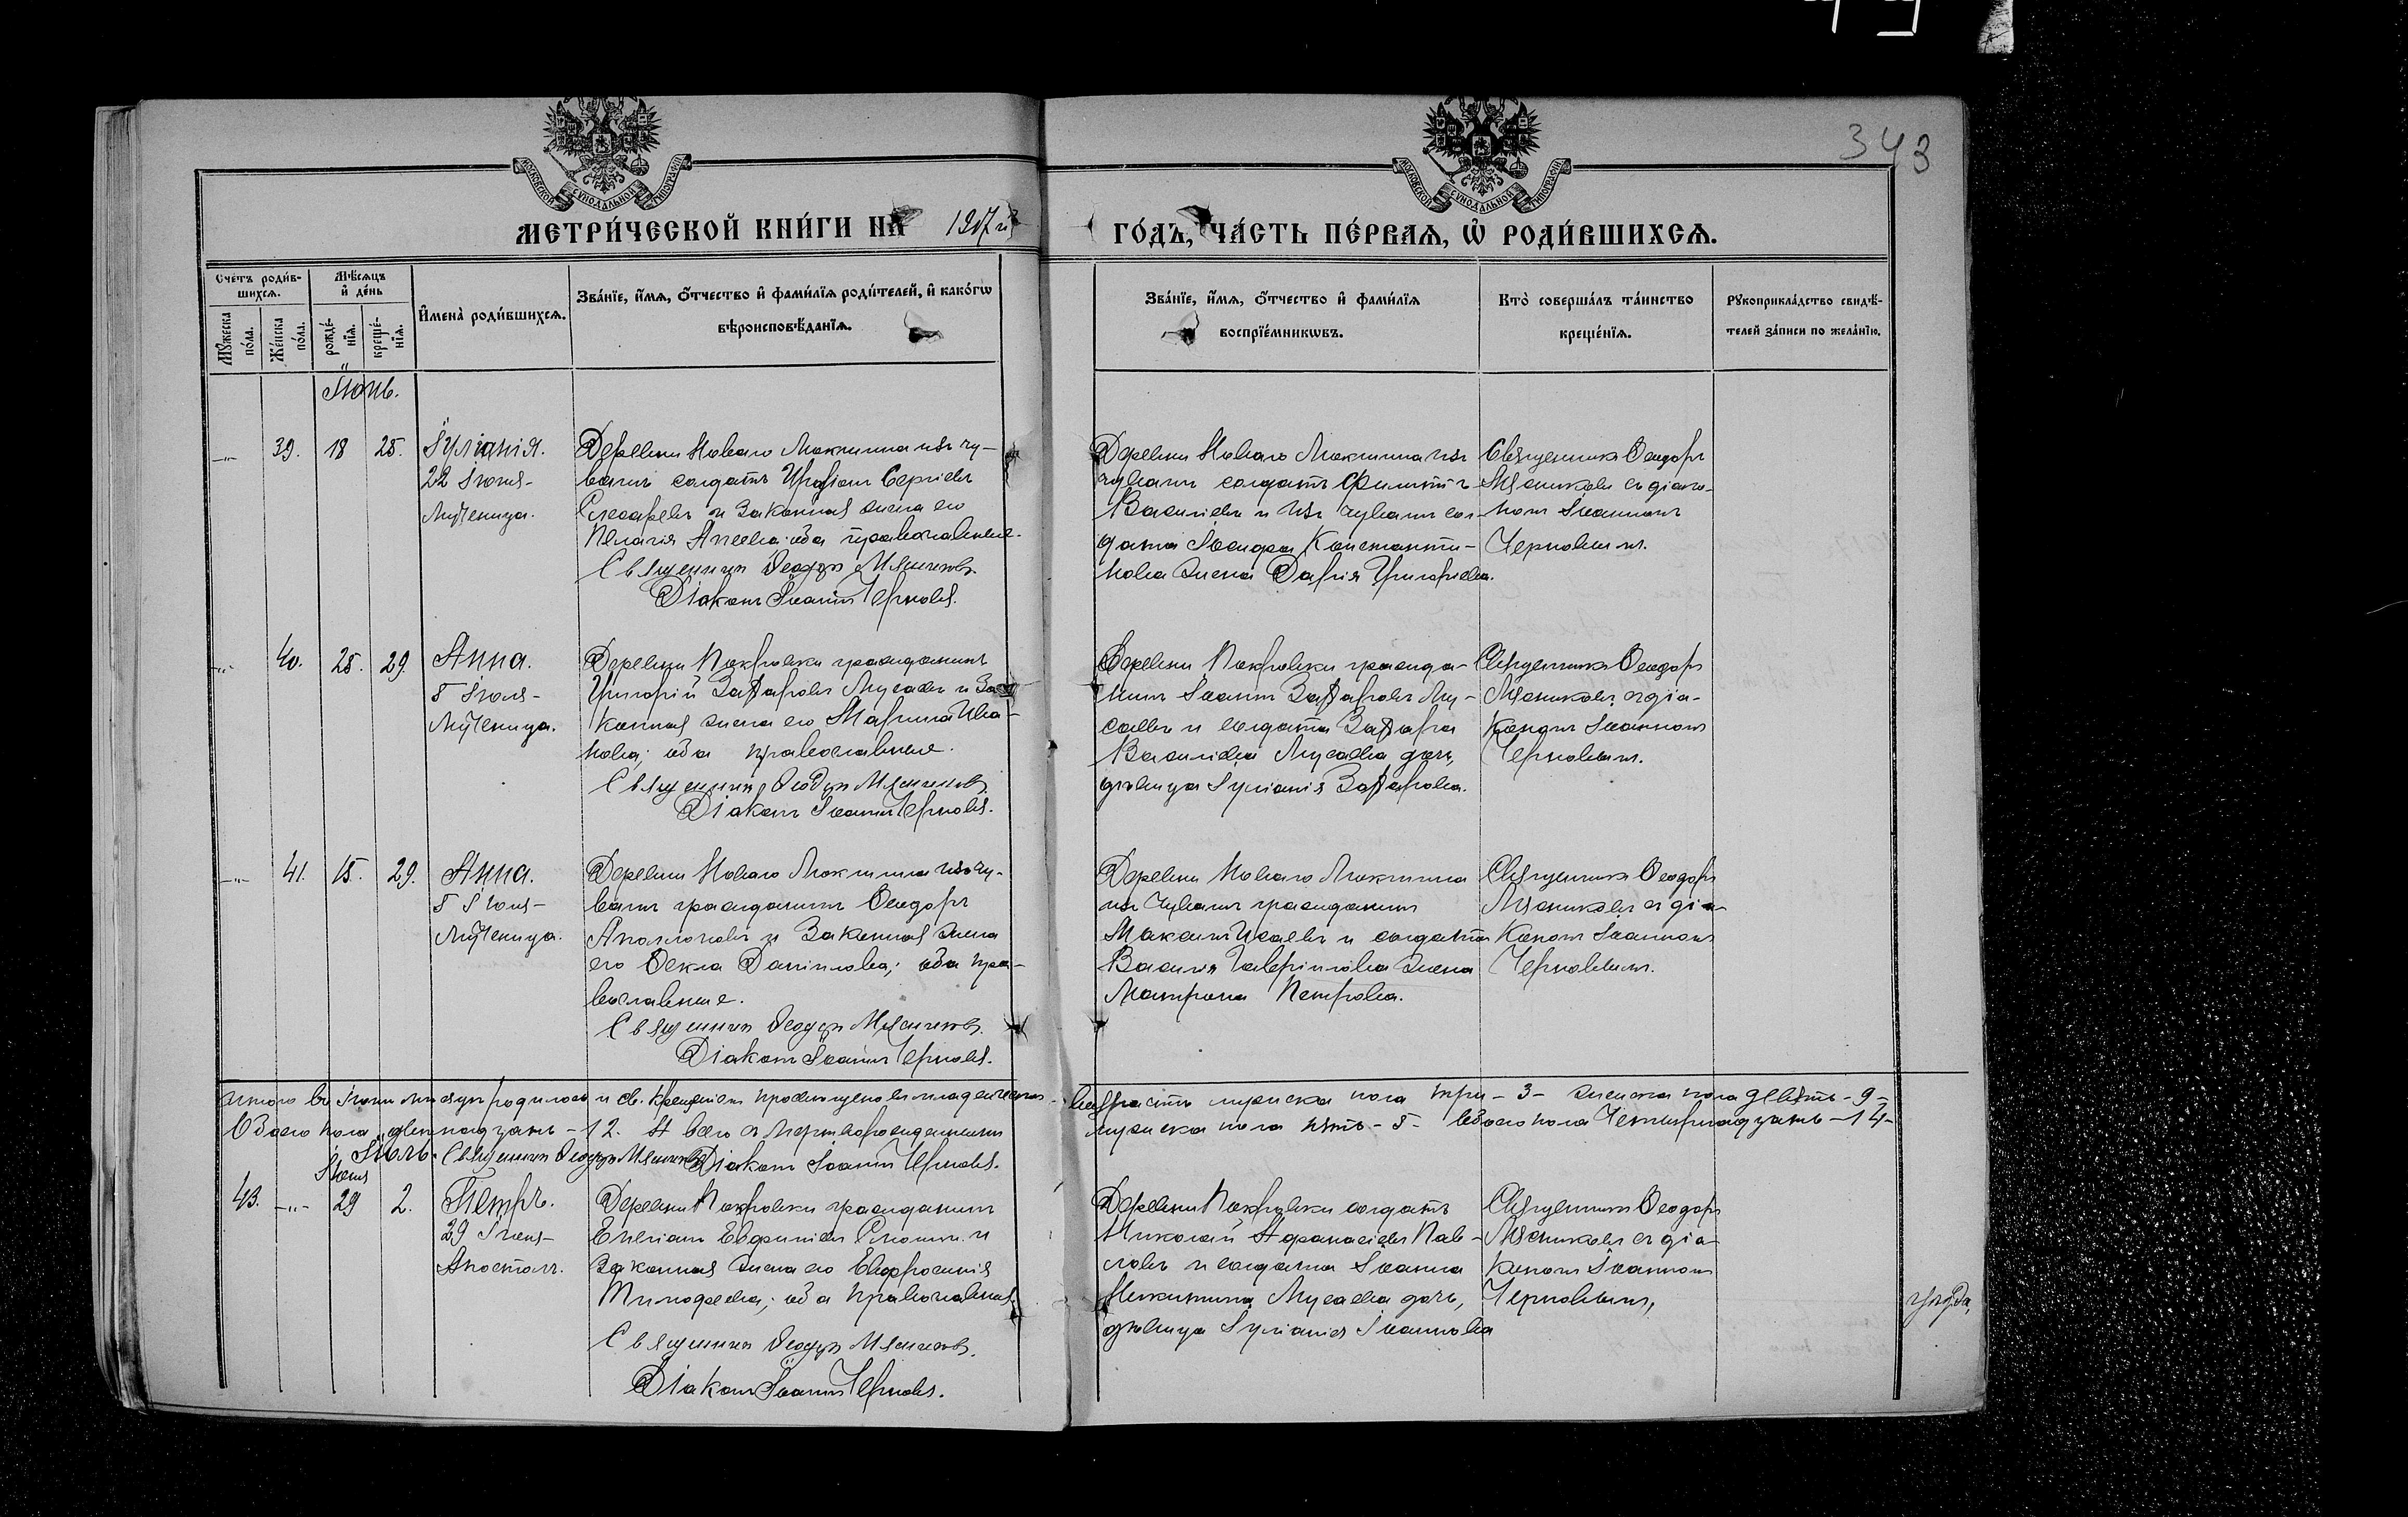 343
МОСКОВСКОЙ СѴНОДАЛЬНОЙ ТИПОГРАФІИ
МОСКОВСКОЙ СѴНОДАЛЬНОЙ ТИПОГРАФІИ
МЕТРИ́ЧЕСКОЙ КНИ́ГИ НА 1917 й
ГО́ДЪ, ЧА́СТЬ ПЕ́РВАѦ, Ѡ҆ РОДИ́ВШИХСѦ.
Сче́тъ роди́в-
шихсѧ.
Мꙋ́жеска по́ла.
Же́нска по́ла.
Мѣ́сѧцъ
и҆ де́нь
рожде́-
нїѧ.
креще́-
нїѧ.
И҆мена̀ роди́вшихсѧ.
Зва́нїе, и҆́мѧ, ѻ҆́тчество и҆ фами́лїѧ роди́телей, и҆ како́гѡ
вѣроисповѣ́данїѧ.
Зва́нїе, и҆́мѧ, ѻ҆́тчество и҆ фами́лїѧ
воспрїе́мникѡвъ.
Кто̀ соверша́лъ та́инство
креще́нїѧ.
Рꙋкоприкла́дство свидѣ́-
телей за́писи по жела́нїю.
Іюнь.
-"- 39. 18 25. Іуліанія.
22 Іюня-
Мученица.
Деревни Новаго Мокшина изъ чу-
вашъ солдатъ Сергіевъ
Слесаревъ и законная жена его
Пелагія оба православные.
Священникъ Ѳеодоръ Мясниковъ.
Діаконъ Іоаннъ Черновъ.
Деревни Новаго Мокшина изъ
чувашъ солдатъ Филиппъ
Васильевъ и изъ чувашъ сол-
дата Ісидора Константи-
нова жена Дарія Григорьева.
Священникъ Ѳеодоръ
Мясниковъ съ діако-
номъ Іоанномъ
Черновымъ.
-"- 40. 25. 29. Анна.
5 Іюля-
Мученица.
Деревни Покровки гражданинъ
Григорій Захаровъ Мусаевъ и за-
конная жена его Марина Ива-
нова; оба православные.
Священникъ Ѳеодоръ Мясниковъ.
Діаконъ Іоаннъ Черновъ.
Деревни Покровки гражда-
нинъ Іоаннъ Захаровъ Му-
саевъ и солдата Захара
Васильева Мусаева дочь,
дѣвица Іуліанія Захарова.
Священникъ Ѳеодоръ
Мясниковъ съ діа-
кономъ Іоанномъ
Черновымъ.
-"- 41. 15. 29. Анна.
5 Іюля-
Мученица.
Деревни Новаго Мокшина изъ чу-
вашъ гражданинъ Ѳеодоръ
и законная жена
его Ѳекла Даніилова; оба пра-
вославные.
Священникъ Ѳеодоръ Мясниковъ.
Діаконъ Іоаннъ Черновъ.
Деревни Новаго Мокшина
изъ чувашъ гражданинъ
Максимъ Исаевъ и солдата
Василія Гавріилова жена
Матрона Петрова.
Священникъ Ѳеодоръ
Мясниковъ съ діа-
кономъ Іоанномъ
Черновымъ.
Итого въ Іюнѣ мѣсяцѣ родилось и св. крещеніемъ просвѣщено въ младенческомъ возрастѣ мужска пола три -3- женска пола девять -9-
Обоего пола двенадцать -12. А всего съ
мужска пола пять -5- обоего пола четырнадцать -14-
Іюль. Священникъ Ѳеодоръ Мясниковъ Діаконъ Іоаннъ Черновъ.
Іюня
43. -"- 29 2. Петръ.
29 Іюня-
Апостолъ.
Деревни Покровки гражданинъ
и
законная жена его Евфросинія
Тимофеева; оба православные.
Священникъ Ѳеодоръ Мясниковъ.
Діаконъ Іоаннъ Черновъ.
Деревни Покровки солдатъ
Николай Аѳанасіевъ Пав-
ловъ и солдата Іоанна
Никитина Мусаева дочь,
дѣвица Іуліанія Іоаннова
Священникъ Ѳеодоръ
Мясниковъ съ діа-
кономъ Іоанномъ
Черновымъ,